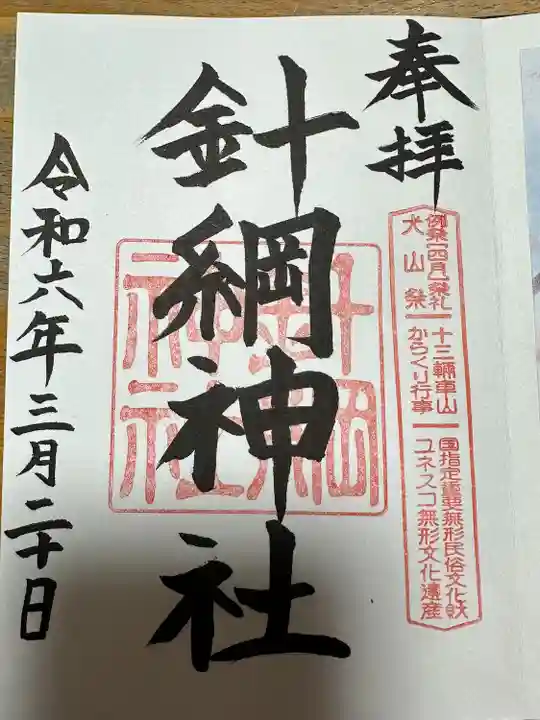 奉拝
例祭(四月)祭礼
犬山祭
十三輛車山
からくり行事
国指定重要無形民俗文化財
ユネスコ無形文化遺産
針綱神社
針綱
神社
令和六年三月二十日